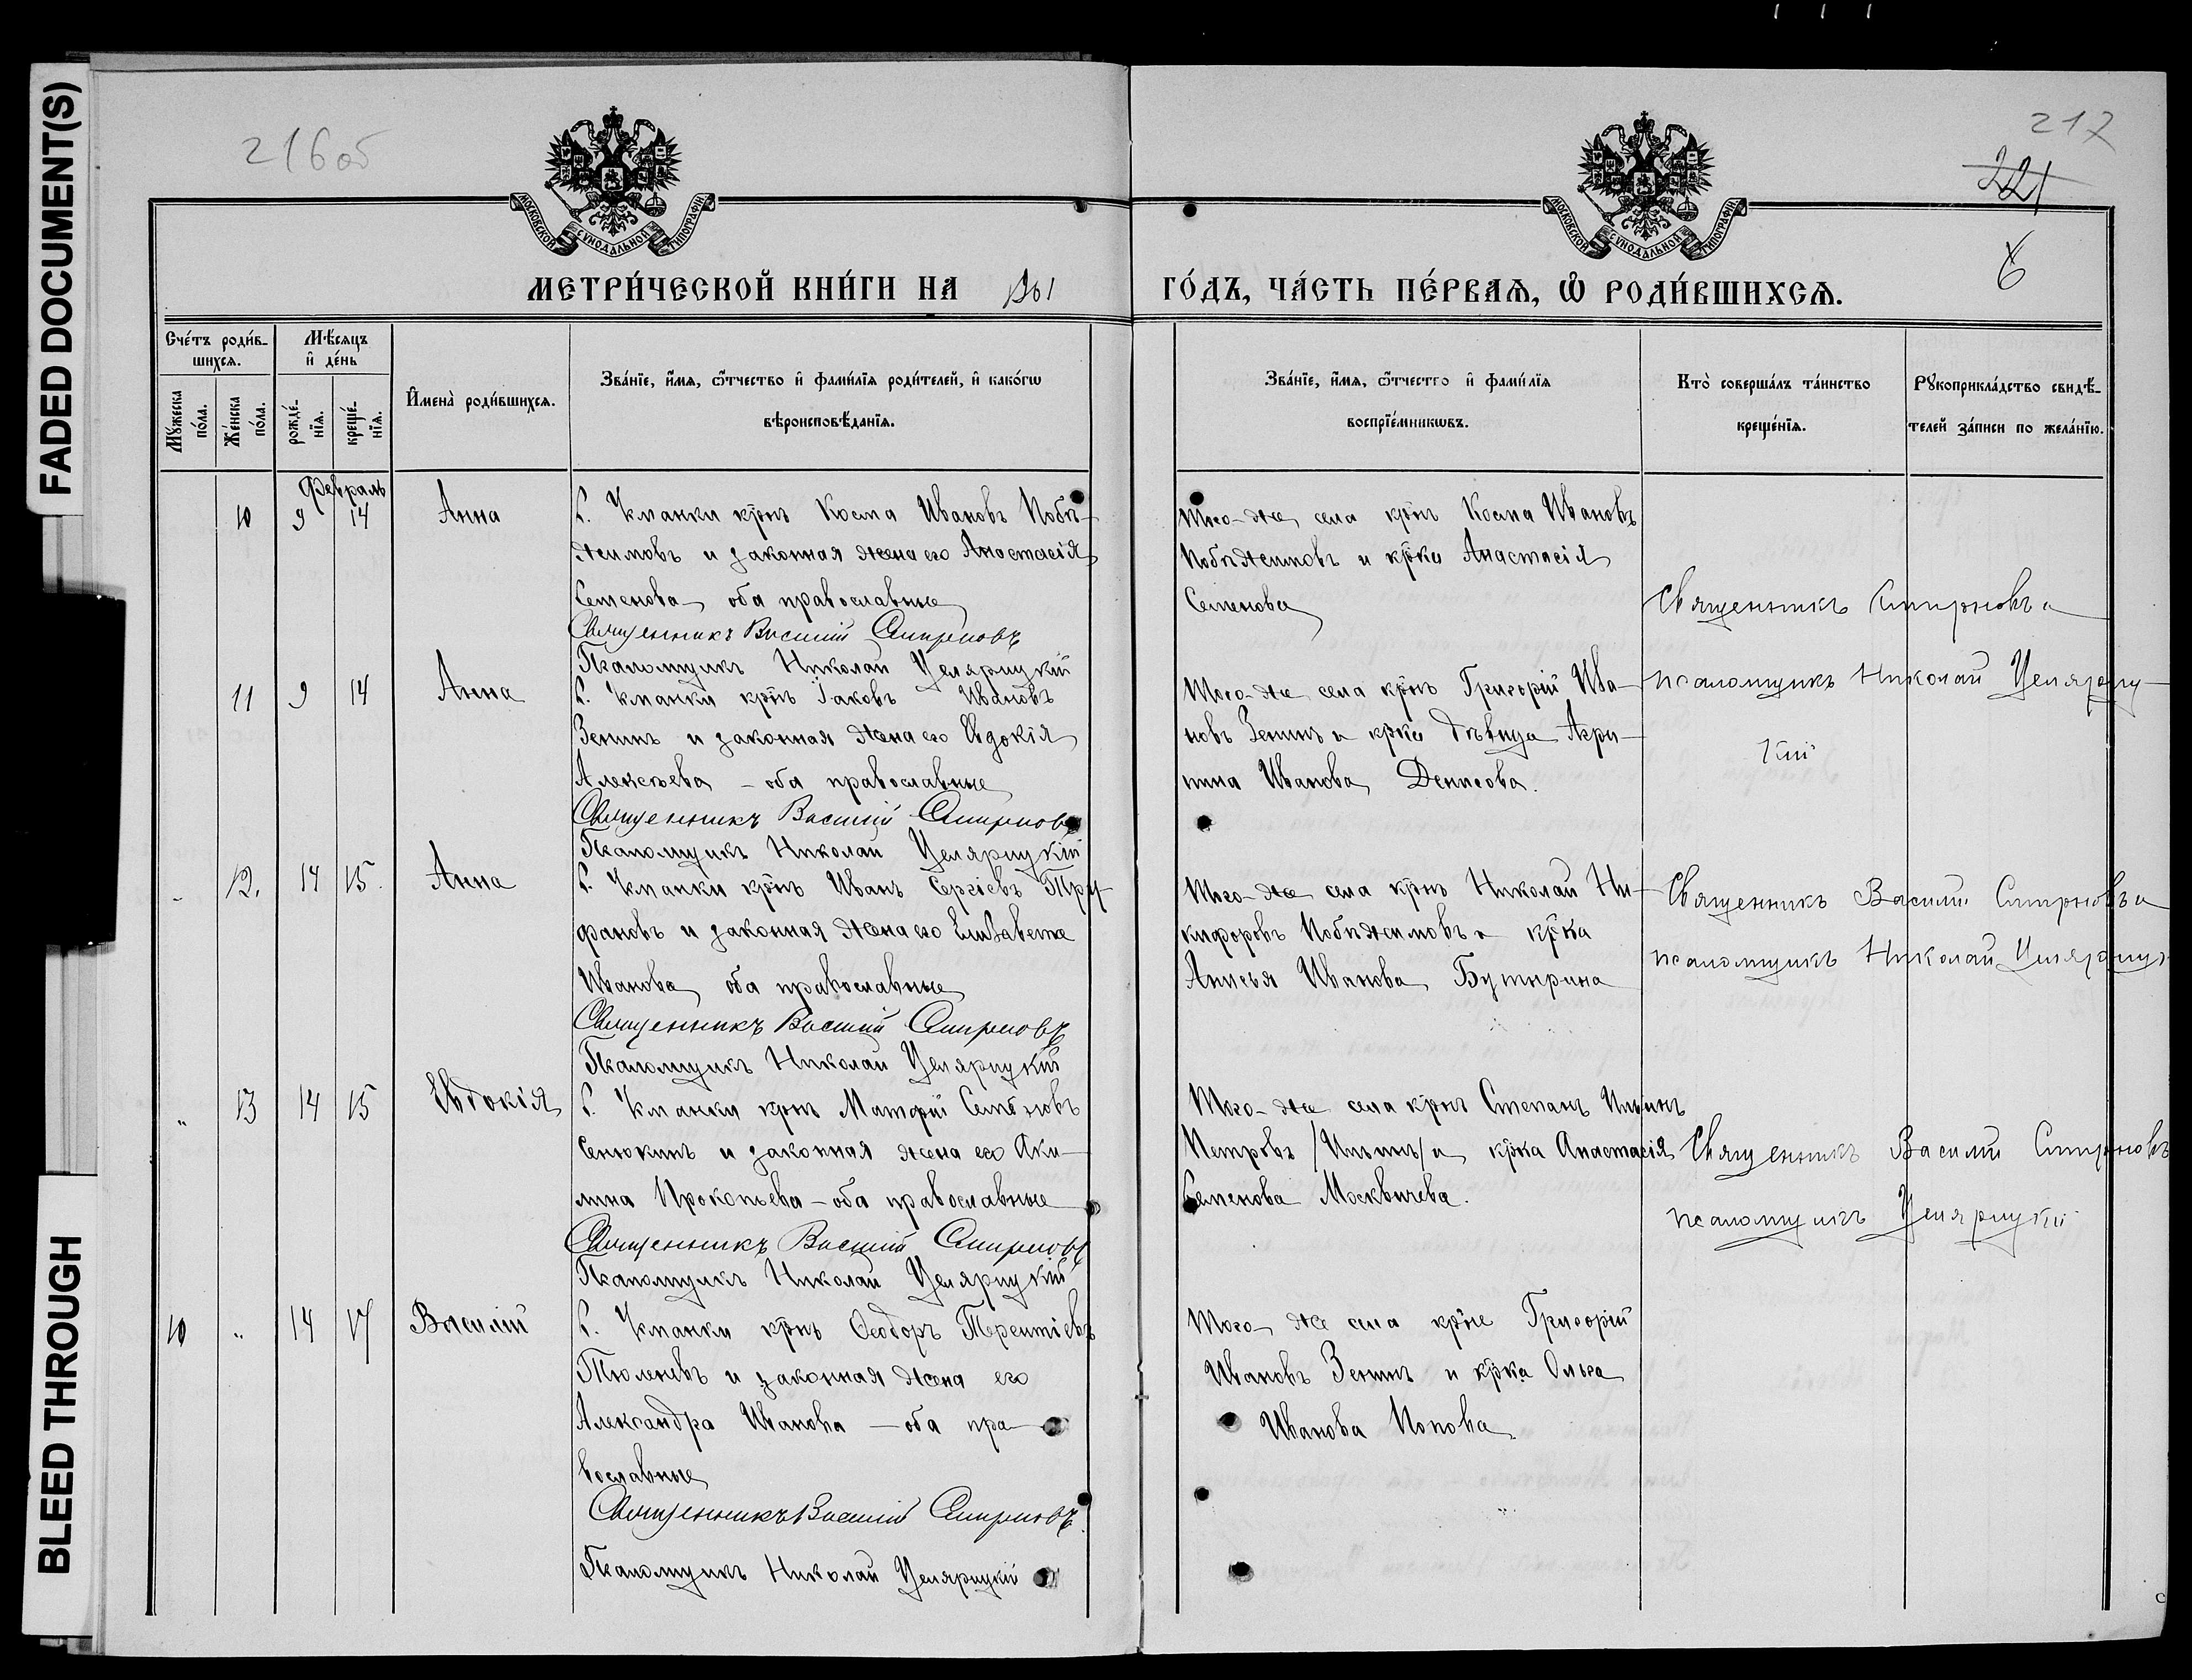 FADED DOCUMENT(S)
BLEED THROUGH
216об
217
221
6
МОСКОВСКОЙ СѴНОДАЛЬНОЙ ТИПОГРАФІИ
МОСКОВСКОЙ СѴНОДАЛЬНОЙ ТИПОГРАФІИ
МЕТРИ́ЧЕСКОЙ КНИ́ГИ НА 1901 ГО́ДЪ, ЧА́СТЬ ПЕ́РВАѦ, Ѡ РОДИ́ВШИХСѦ.
Сче́тъ роди́в-
шихсѧ.
Мꙋжеска по́ла.
Же́нска по́ла.
Мѣ́сѧцъ
и҆ де́нь
рожде́-
нїѧ.
креще́-
нїѧ.
И҆мена̀ роди́вшихсѧ.
Зва́нїе, и҆́мѧ, ѻ҆́тчество и҆ фами́лїѧ роди́телей, и҆ како́гѡ
вѣроисповѣ́данїѧ.
Зва́нїе, и҆́мѧ, ѻ҆́тчество и҆ фами́лїѧ
воспрїе́мникѡвъ.
Кто̀ соверша́лъ та́инство
креще́нїѧ.
Рꙋкоприкла́дство свидѣ́-
телей за́писи по жела́нїю.
Февраль
10 9 14 Анна
С. Кманки крнъ Косма Ивановъ Побѣ-
жимовъ и законная жена его Анастасія
Семенова оба православные
Священникъ Василій Смирновъ
Псаломщикъ Николай Целярицкій
Того-же села крнъ Косма Ивановъ
Побѣжимовъ и крка Анастасія
Семенова
Священникъ Смирновъ и
псаломщикъ Николай Целяриц-
кій
11 9 14 Анна
С. Кманки крнъ Іаковъ Ивановъ
Зенинъ и законная жена его Евдокія
Алексѣева - оба православные
Священникъ Василій Смирновъ
Псаломщикъ Николай Целярицкій
Того-же села крнъ Григорій Ива-
новъ Зенинъ и крка дѣвица Агри-
пина Иванова Денисова.
12. 14 15. Анна
С. Кманки крнъ Иванъ Сергіевъ Три-
фановъ и законная жена его Елизавета
Иванова оба православные
Священникъ Василій Смирновъ
Псаломщикъ Николай Целярицкій
Того-же села крнъ Николай Ни-
кифоровъ Побѣжимовъ и крка
Анисья Иванова Бутырина
Священникъ Василій Смирновъ и
псаломщикъ Николай
„ 13 14 15 Евдокія
С. Кманки крнъ Матфій Семеновъ
Сенюкинъ и законная жена его Аки-
лина Прокопьева - оба православные
Священникъ Василій Смирновъ
Псаломщикъ Николай Целярицкій
Того-же села крнъ Степанъ Ильинъ
Петровъ /Ильинъ/ и крка Анастасія
Семенова Москвичева.
Священникъ Василій Смирновъ
псаломщикъ Целярицкій
10 „ 14 17 Василій
С. Кманки крнъ Ѳеодоръ Терентіевъ
Тюленевъ и законная жена его
Александра Иванова - оба пра
вославные
Священникъ Василій Смирновъ.
Псаломщикъ Николай Целярицкій
Того же села крне Григорій
Ивановъ Зенинъ и крка Ольга
Иванова Попова